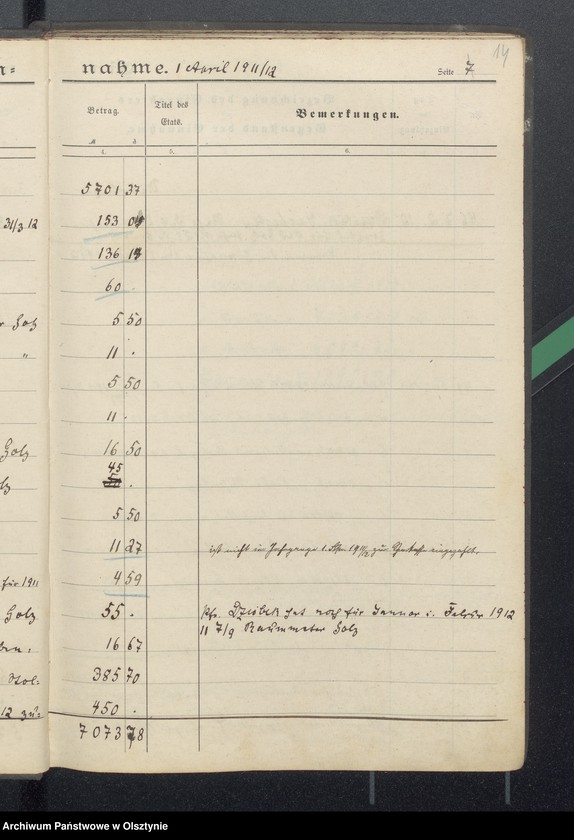 14
nahme. 1 April 1911/12 Seite 7
Betrag. Titel des Etats. Bemerkungen.
M
4. 5. 6.
5701 37
31/3 12 153 04
136 14
60 .
Holz 5 50
" 11 .
5 50
11 .
Holz 16 50
45
.
5 50
11 27 ist nicht in
für 1911 4 59
Holz 55 . hat noch für Januar u. Februar 1912
11 7/9 Raummeter Holz
16 67
385 70
12 zu: 450 .
7073 78
Archiwum Państwowe w Olsztynie